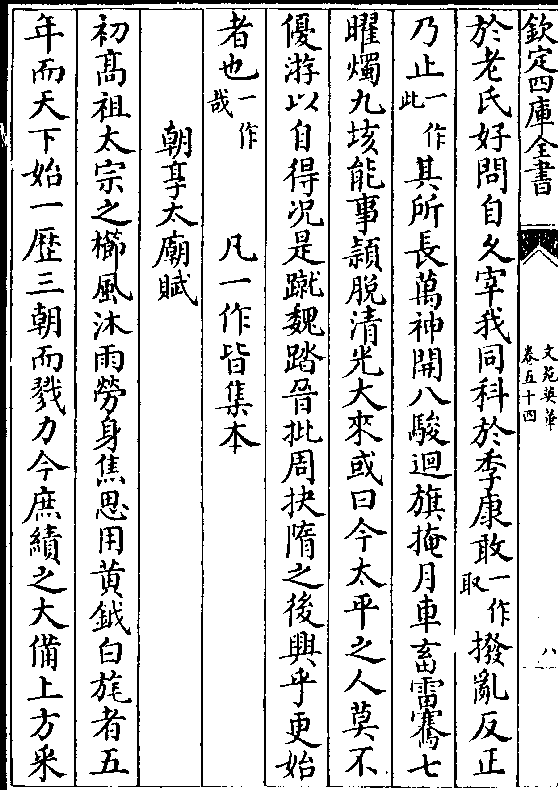 欽定四庫全書
文苑英華
卷五十四
八
於老氏好問自久宰我同科於季康敢一作取撥亂反正
乃止一作此其所長萬神開八駿迴旗掩月車畜雷騫七
曜燭九垓能事潁脫清光大來或曰今太平之人莫不
優游以自得況是蹴魏踏晉批周抉隋之後與乎更始
者也一作哉 凡一作皆集本
朝享太廟賦
初髙祖太宗之櫛風沐雨勞身焦思用黄鉞白旄者五
年而天下始一歷三朝而戮力今庶績之大備上方采